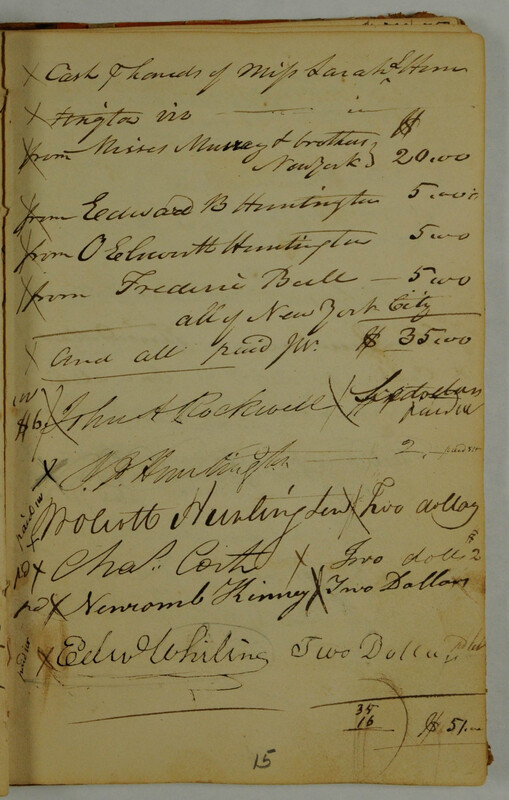 X Cash ⅌ hands of Miss Sarah L Hun
X tington viz
$
from Misses Murray & brothers
New York } 20.00
from Edward B Huntington 5.00
from O Elsworth Huntington 5.00
from Frederic Bull — 5.00
all of New York City
X And all paid $ 35.00
$6 X John A Rockwell X Six dollars
paid
X Huntington — 2, paid
paid X Wolcott Huntington X Two dollars
pd X Chas. Coit X Two dolls 2
pd X Newcomb Kinney X Two Dollars
paid X Edw Whiting Two Dollars pd
35
16
$ 51.00
15